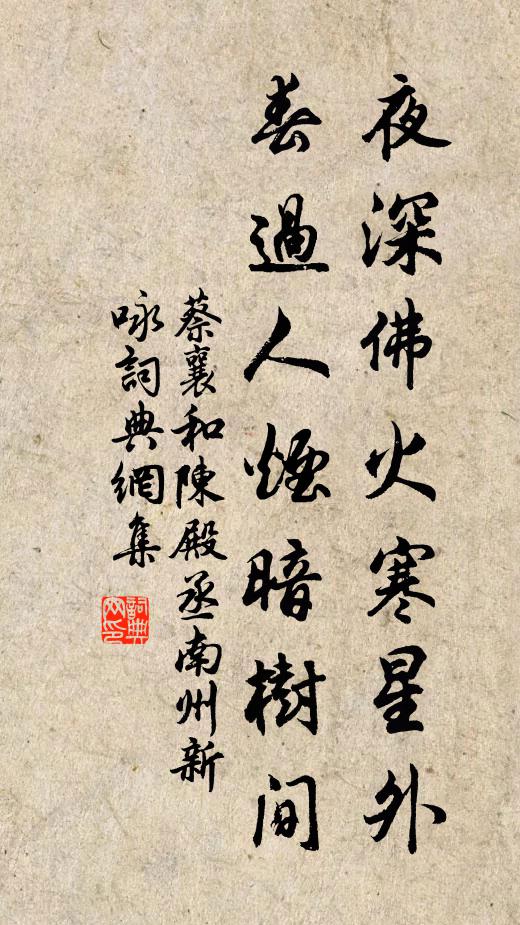 夜深佛火寒星外
春過人煙暗樹間
蔡襄和陳殿丞南州新
咏詞典網集
詞典
网印